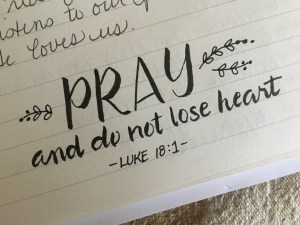 listens to our
loves us.
PRAY
and do not lose heart
-LUKE 18:1-